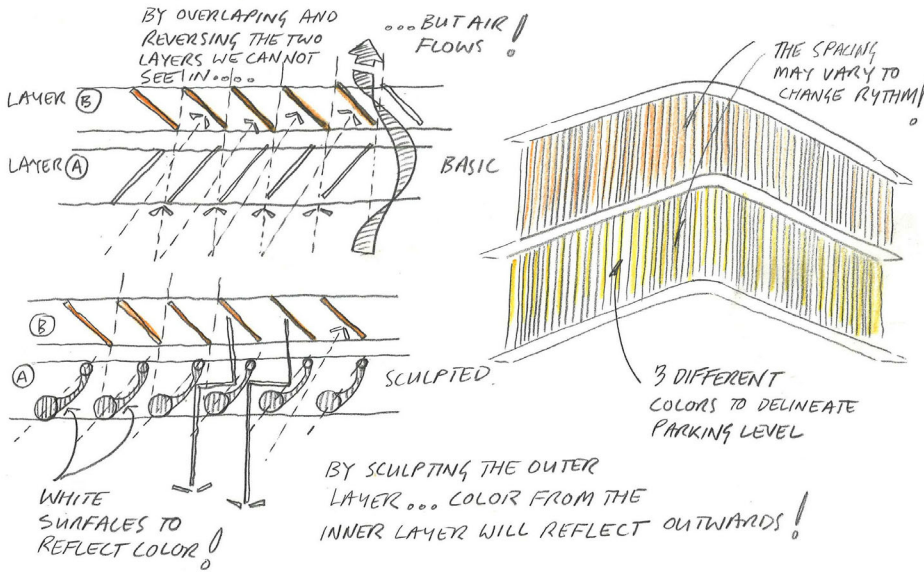 BY OVERLAPING AND
REVERSING THE TWO
LAYERS WE CANNOT
SEE IN....
...BUT AIR
FLOWS!
LAYER B
LAYER A
BASIC
THE SPACING
MAY VARY TO
CHANGE RYTHM!
B
A
SCULPTED.
3 DIFFERENT
COLORS TO DELINEATE
PARKING LEVEL
WHITE
SURFACES TO
REFLECT COLOR!
BY SCULPTING THE OUTER
LAYER... COLOR FROM THE
INNER LAYER WILL REFLECT OUTWARDS!